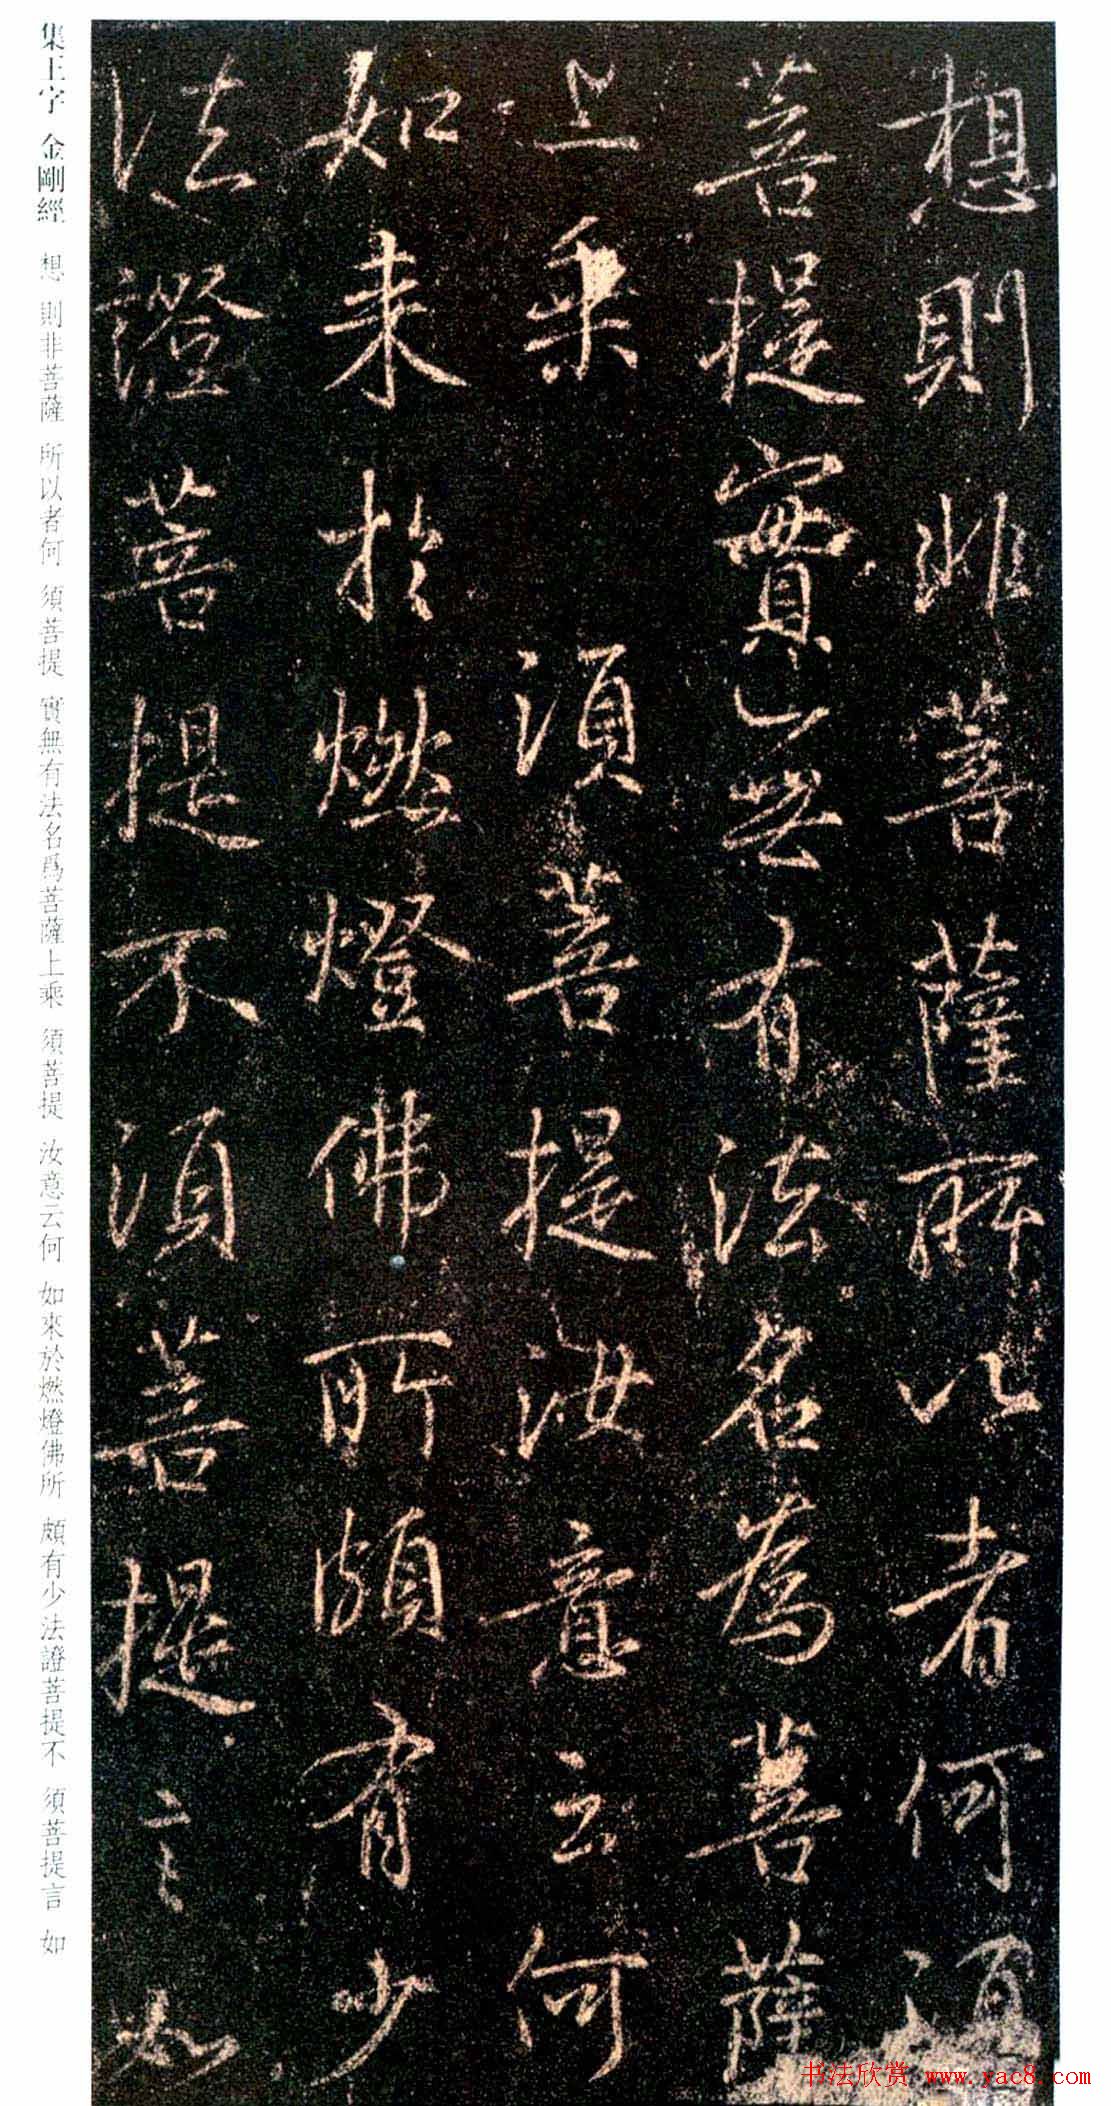 想則非菩薩所以者何須
菩提實無有法名為菩薩
上乘須菩提汝意云何
如来於燃燈佛所頗有少
法證菩提不須菩提言如
集王字 金剛經 想 則非菩薩 所以者何 須菩提 實無有法名爲菩薩上乘 須菩提 汝意云何 如來於燃燈佛所 頗有少法證菩提不 須菩提言 如
书法欣赏 www.yac8.com